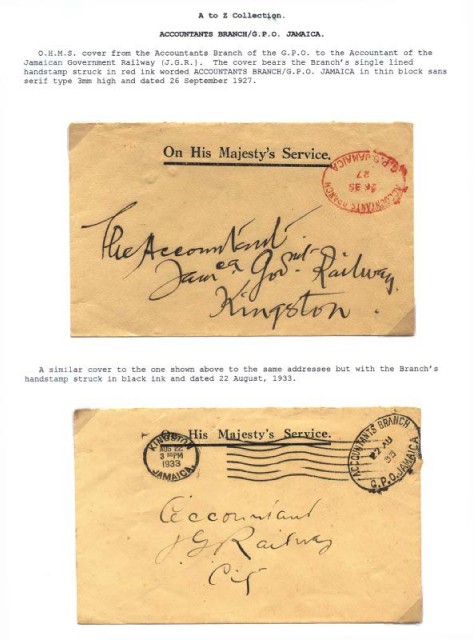 A to Z Collection.
ACCOUNTANTS BRANCH/G.P.O. JAMAICA.
O.H.M.S. cover from the Accountants Branch of the G.P.O. to the Accountant of the
Jamaican Government Railway (J.G.R.). The cover bears the Branch's single lined
handstamp struck in red ink worded ACCOUNTANTS BRANCH/G.P.O. JAMAICA in thin block sans
serif type 3mm high and dated 26 September 1927.
On His Majesty's Service.
ACCOUNTANTS BRANCH
27
G.P.O. JAMAICA
The Accountant
Jamca Govmt Railway
Kingston.
A similar cover to the one shown above to the same addressee but with the Branch's
handstamp struck in black ink and dated 22 August, 1933.
On His Majesty's Service.
KINGSTON
AUG 22
3 30 PM
1933
JAMAICA.
ACCOUNTANTS BRANCH
22 AU
33
G.P.O. JAMAICA
Accountant
J G Railway
City